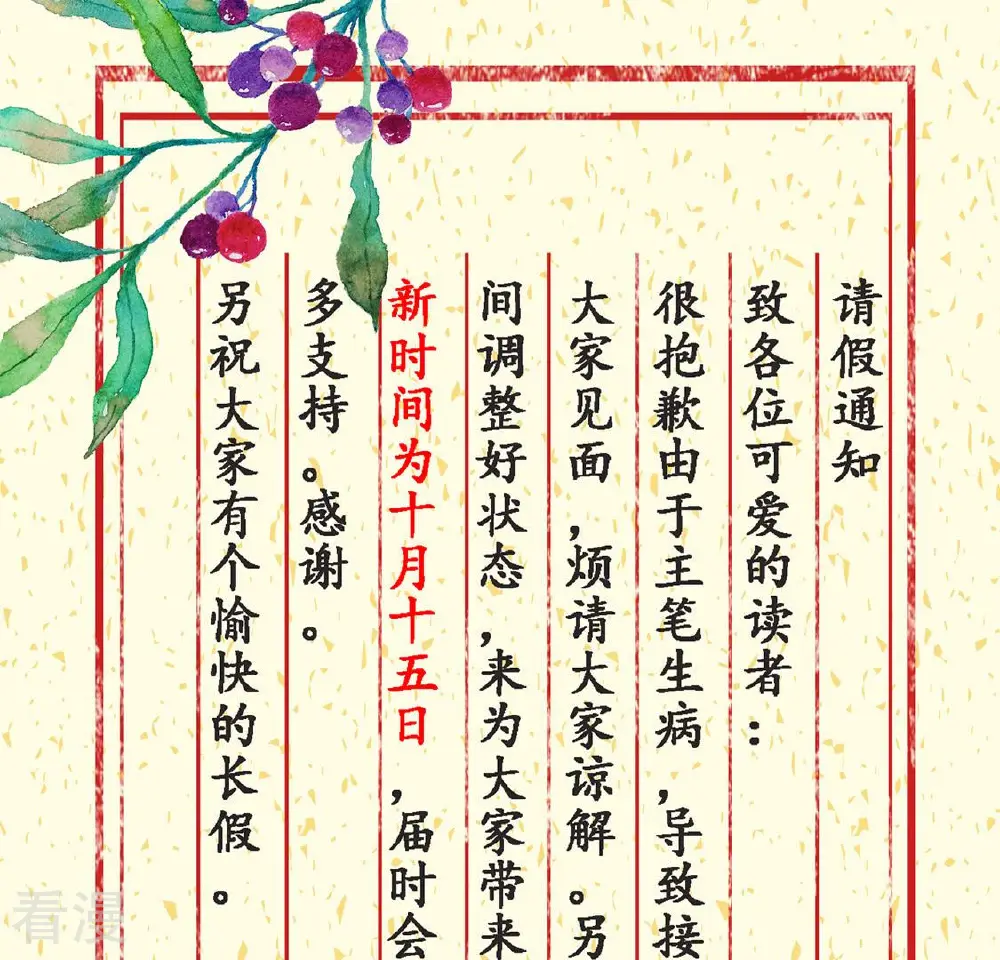 请假通知
致各位可爱的读者：
很抱歉由于主笔生病，导致接
大家见面，烦请大家谅解。另
间调整好状态，来为大家带来
新时间为十月十五日，届时会
多支持。感谢。
另祝大家有个愉快的长假。
看漫